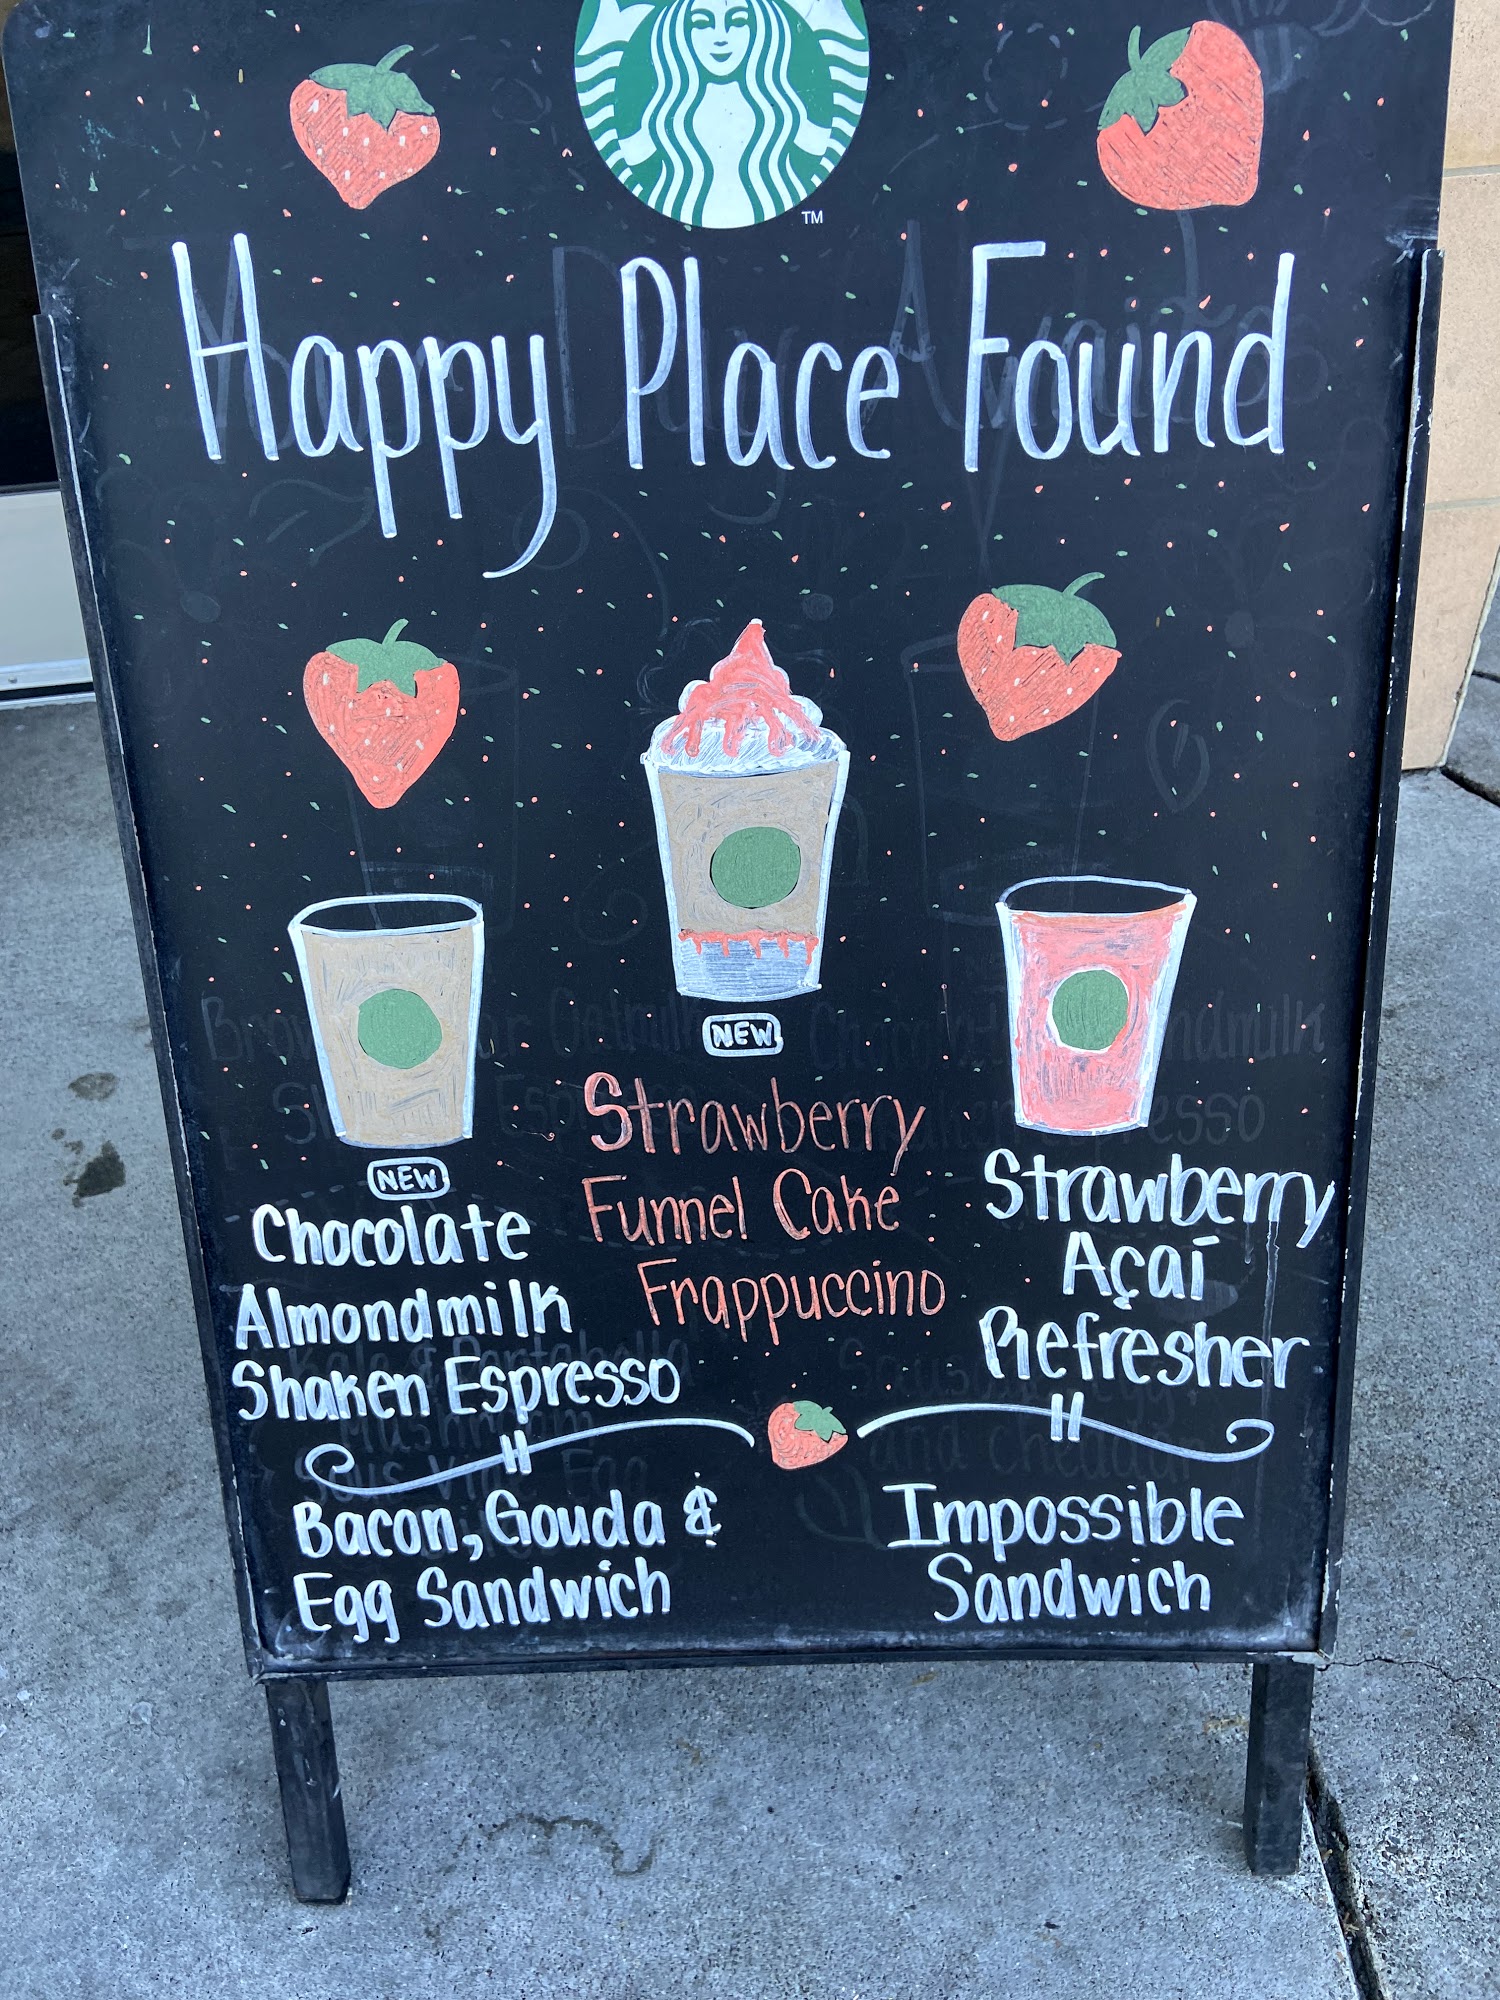 TM
Happy Place Found
NEW
Strawberry
Funnel Cake
Frappuccino
NEW
Chocolate
Almondmilk
Shaken Espresso
Strawberry
Açaí
Refresher
Bacon, Gouda &
Egg Sandwich
Impossible
Sandwich